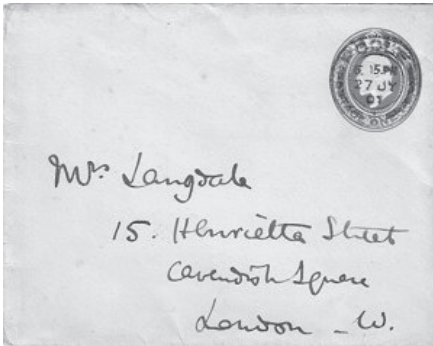 POOLE
6.15.PM
27 JY
07
Mrs. Langdale
15. Henrietta Street
Cavendish Square
London - W.